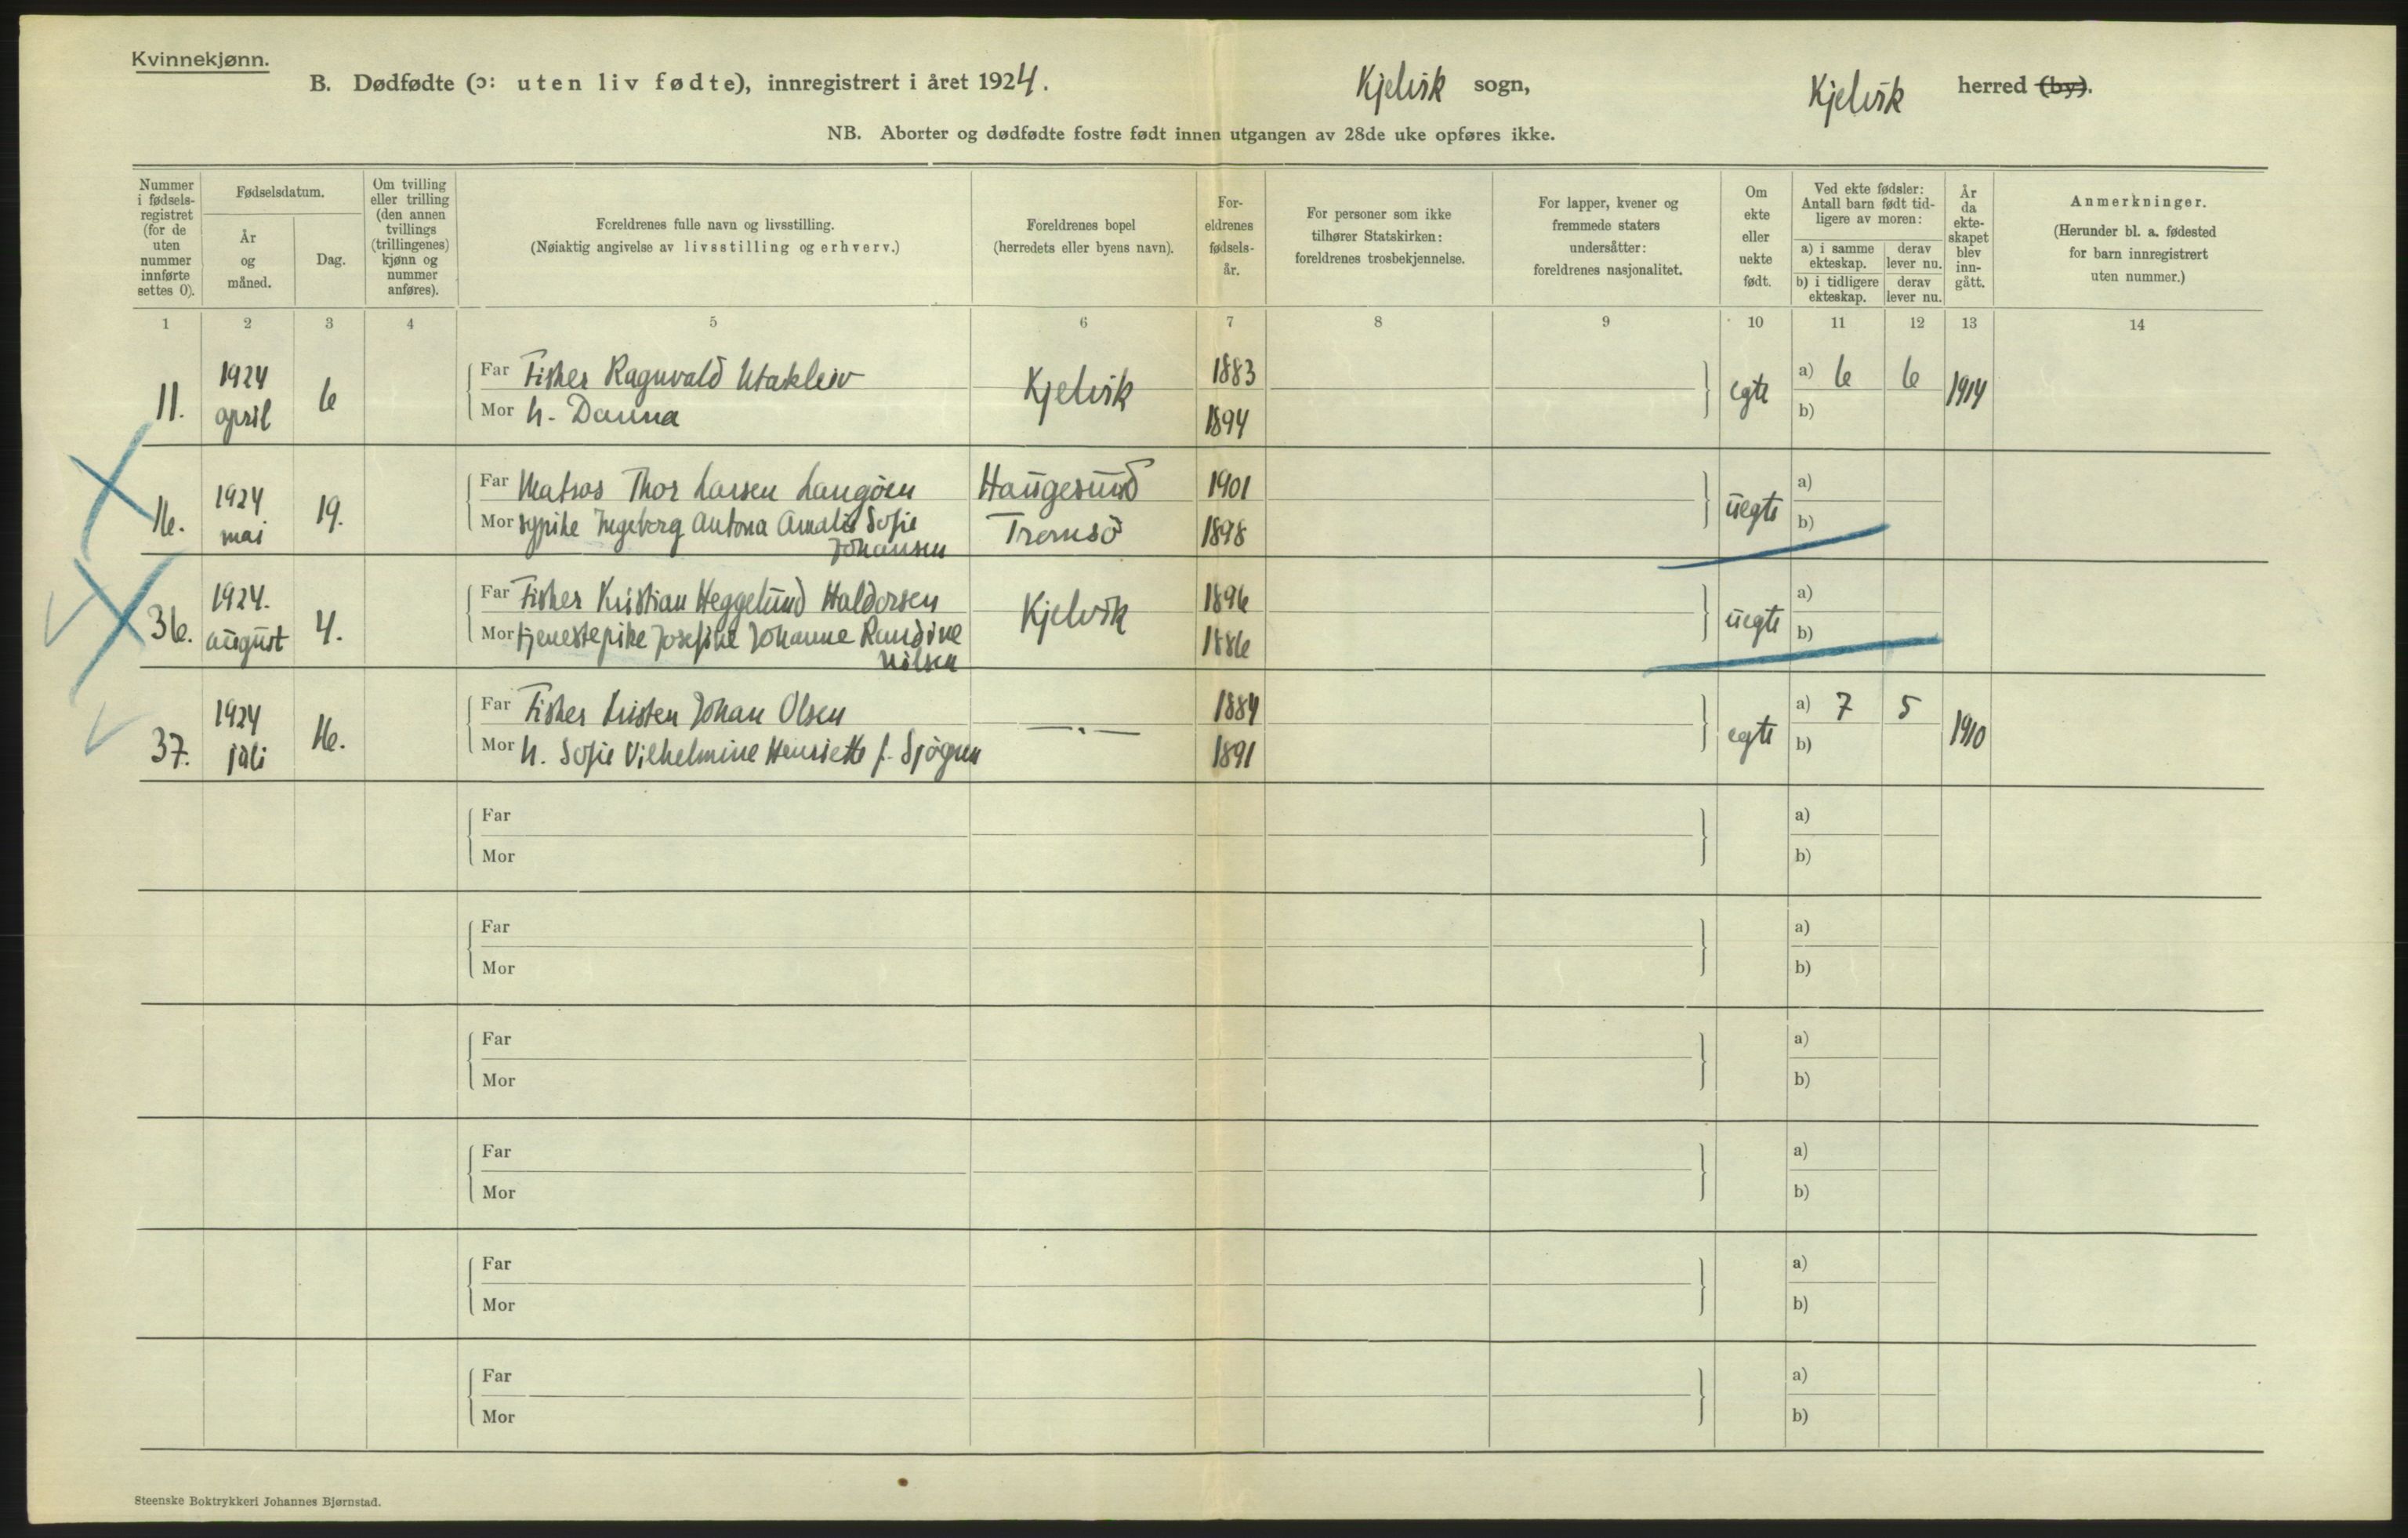 Kvinnekjønn.
B. Dødfødte (ɔ: uten liv fødte), innregistrert i året 1924. Kjelvik sogn, Kjelvik herred (by).
NB. Aborter og dødfødte fostre født innen utgangen av 28de uke opføres ikke.
Nummer i fødsels-registret (for de uten nummer innførte settes 0).
Fødselsdatum.
År og måned.
Dag.
Om tvilling eller trilling (den annen tvillings (trillingenes) kjønn og nummer anføres).
Foreldrenes fulle navn og livsstilling.
(Nøiaktig angivelse av livsstilling og erhverv.)
Foreldrenes bopel
(herredets eller byens navn).
For-eldrenes fødsels-år.
For personer som ikke tilhører Statskirken: foreldrenes trosbekjennelse.
For lapper, kvener og fremmede staters undersåtter: foreldrenes nasjonalitet.
Om ekte eller uekte født.
Ved ekte fødsler: Antall barn født tid-ligere av moren:
a) i samme ekteskap.
derav lever nu.
b) i tidligere ekteskap.
derav lever nu.
År da ekte-skapet blev inn-gått.
Anmerkninger.
(Herunder bl. a. fødested for barn innregistrert uten nummer.)
1 2 3 4 5 6 7 8 9 10 11 12 13 14
11. 1924 april 6 Far Fisker Ragnvald Utakleiv Kjelvik 1883 egte a) 6 6 1914
Mor h. Danna 1894 b)
16. 1924 mai 19. Far Matros Thor Larsen Langøen Haugesund 1901 uegte a)
Mor sypike Ingeborg Antona Amalie Sofie Johansen Tromsö 1898 b)
36. 1924. august 4. Far Fisker Kristian Heggelund Haldorsen Kjelvik 1896 uegte a)
Mor tjenestepike Josefine Johanne Randine Nilsen 1886 b)
37. 1924 juli 16. Far Fisker Kristen Johan Olsen —.— 1884 egte a) 7 5 1910
Mor h. Sofie Vilhelmine Henriette f. Sjögren 1891 b)
Far a)
Mor b)
Far a)
Mor b)
Far a)
Mor b)
Far a)
Mor b)
Far a)
Mor b)
Far a)
Mor b)
Steenske Boktrykkeri Johannes Bjørnstad.